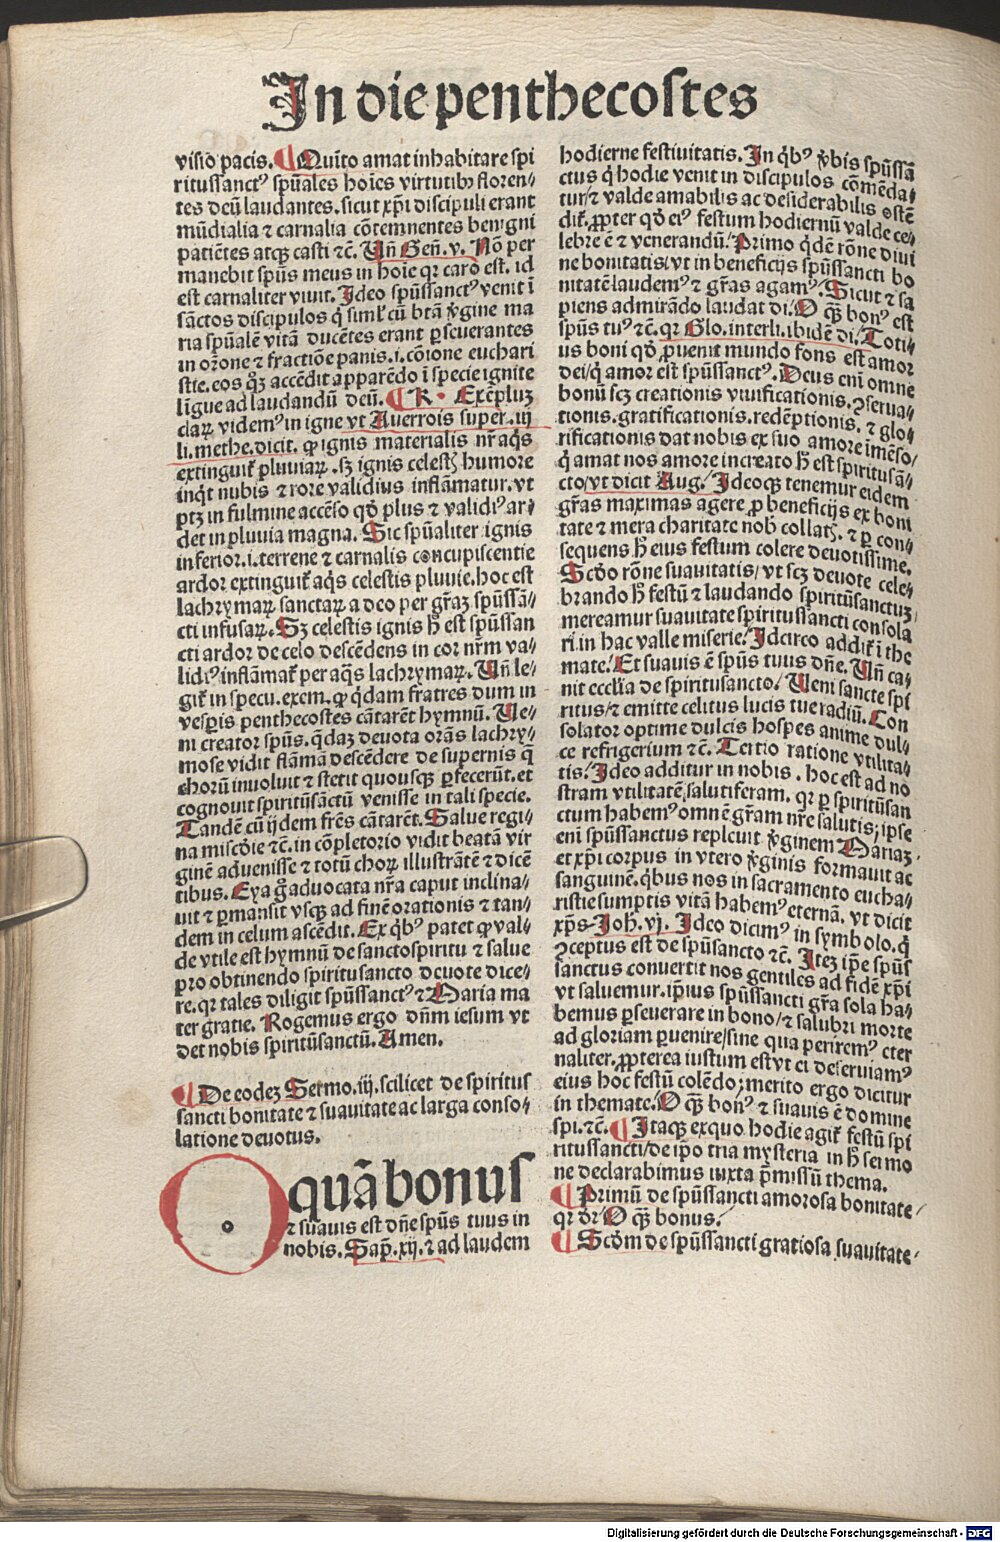 In die penthecostes
visiō pacis. ¶ Quīto amat inhabitare spi
ritussanctꝰ spūales hoīes virtutibꝫ floren⸗
tes deū laudantes. sicut xp̄i discipuli erant
mūdialia ⁊ carnalia cōtemnentes benigni
patiētes atqꝫ casti ⁊c̄. Vn̄ Gen̄. v. Nō per
manebit spūs meus in hoīe qr caro est. id
est carnaliter viuit. Ideo spūssanctꝰ venit ī
sāctos discipulos q̇ siml̓ cū btā v̓gine ma
ria spūalē vitā ducētes erant ꝑseuerantes
in orōne ⁊ fractiōe panis. i. cōione euchari
stie. eos qꝫ accēdit apparēdo ī specie ignite
līgue ad laudandū deū. ¶ R · Exēpluꝫ
claꝝ videmꝰ in igne vt Auerrois super. iij
li. methe. dicit. ꝙ ignis materialis nr̄ aq̇s
extinguit̓ pluuiaꝝ. sꝫ ignis celestꝭ humore
inq̇t nubis ⁊ rore validius inflāmatur. vt
ptꝫ in fulmine accēso qd̓ plus ⁊ validiꝰ ar⸗
det in pluuia magna. Sic spūaliter ignis
inferior. i. terrene ⁊ carnalis concupiscentie
ardor extinguit̓ aq̇s celestis pluuie. hoc est
lachrymaꝝ sanctaꝝ a deo per gr̄aꝫ spūssā⸗
cti infusaꝝ. Sꝫ celestis ignis h̓ est spūssan
cti ardor de celo descēdens in cor nr̄m va⸗
lidiꝰ inflāmat̓ per aq̇s lachrymaꝝ. Vn̄ le⸗
git̓ in specu. exem. ꝙ q̇dam fratres dum in
vesꝑis penthecostes cātarēt hymnū. Ve⸗
ni creator spūs. q̄daꝫ deuota orās lachry⸗
mose vidit flāmā descēdere de supernis q̄
chorū inuoluit ⁊ stetit quousqꝫ ꝑfecerūt. et
cognouit spiritūsāctū venisse in tali specie.
Tandē cū ijdem fr̄es cātarēt. Salue regi⸗
na misc̓die ⁊c̄. in cōpletorio vidit beatā vir
ginē aduenisse ⁊ totū choꝝ illustrātē ⁊ dicē
tibus. Eya g̊ aduocata nr̄a caput inclina⸗
uit ⁊ ꝑmansit vsqꝫ ad finē orationis ⁊ tan⸗
dem in celum ascēdit. Ex q̇bꝰ patet ꝙ val⸗
de vtile est hymnū de sanctospiritu ⁊ salue
pro obtinendo spiritusancto deuote dice⸗
re. qr tales diligit spūssanctꝰ ⁊ Maria ma
ter gratie. Rogemus ergo dn̄m iesum vt
det nobis spiritūsanctū. Amen.
¶ De eodeꝫ Sermo. iij. scilicet de spiritus
sancti bonitate ⁊ suauitate ac larga conso⸗
latione deuotus.
O quā bonus
⁊ suauis est dn̄e spūs tuus in
nobis. Sap̄. xij. ⁊ ad laudem
hodierne festiuitatis. In q̇bꝰ v̓bis spūssā
ctus q̇ hodie venit in discipulos cōmēda⸗
tur/ ⁊ valde amabilis ac desiderabilis ostē
dit̓. ꝓpter qd̓ eiꝰ festum hodiernū valde ce⸗
lebre ē ⁊ venerandū. Primo q̇dē rōne diui
ne bonitatis/ vt in beneficijs spūssancti bo
nitatē laudemꝰ ⁊ gr̄as agamꝰ. Sicut ⁊ sa
piens admirādo laudat di. O q̄ꝫ bonꝰ est
spūs tuꝰ ⁊c̄. qr Glo. interli. ibidē di. Toti⸗
us boni qd̓ ꝑuenit mundo fons est amor
dei/ q̇ amor est spūssanctꝰ. Deus eni omne
bonū scꝫ creationis viuificationis. ꝯserua⸗
tionis. gratificationis. redēptionis. ⁊ glo⸗
rificationis dat nobis ex suo amore īmēso/
q̇ amat nos amore increato h̓ est spiritusā⸗
cto/ vt dicit Aug. Ideoqꝫ tenemur eidem
gr̄as maximas agere ꝓ beneficijs ex boni
tate ⁊ mera charitate nob̓ collatꝭ. ⁊ ꝑ con⸗
sequens h̓ eius festum colere deuotissime.
Scd̓o rōne suauitatis/ vt scꝫ deuote cele⸗
brando h̓ festū ⁊ laudando spiritūsanctuꝫ
mereamur suauitate spiritussancti consola
ri in hac valle miserie. Idcirco addit̓ ī the
mate. Et suauis ē spūs tuus dn̄e. Vn̄ ca⸗
nit ecclīa de spiritusancto. Veni sancte spi
ritus/ ⁊ emitte celitus lucis tue radiū. Con
solator optime dulcis hospes anime dul⸗
ce refrigerium ⁊c̄. Tertio ratione vtilita⸗
tis. Ideo additur in nobis. hoc est ad no
stram vtilitatē salutiferam. qr ꝑ spiritūsan
ctum habemꝰ omnē gr̄am nr̄e salutis; ipse
eni spūssanctus repleuit v̓ginem Mariaꝫ.
et xp̄i corpus in vtero v̓ginis formauit ac
sanguinē. q̇bus nos in sacramento eucha⸗
ristie sumptis vitā habemꝰ eternā. vt dicit
xp̄s Joh. vj. Ideo dicimꝰ in symbolo. q̇
ꝯceptus est de spūsancto ⁊c̄. Iteꝫ ip̄e spūs
sanctus conuertit nos gentiles ad fidē xp̄i
vt saluemur. ip̄ius spūssancti gr̄a sola ha⸗
bemus ꝑseuerare in bono/ ⁊ salubri morte
ad gloriam ꝑuenire/ sine qua periremꝰ eter
naliter. ꝓpterea iustum est vt ei deseruiamꝰ
eius hoc festū colēdo; merito ergo dicitur
in themate. O q̄ꝫ bonꝰ ⁊ suauis ē domine
spi. ⁊c̄. ¶ Itaqꝫ ex quo hodie agit̓ festū spi
ritussancti/ de ipo tria mysteria in h̓ sermo
ne declarabimus iuxta p̄missū thema.
¶ Primū de spūssancti amorosa bonitate/
qr dr̄ O q̄ꝫ bonus.
¶ Scd̓m de spūssancti gratiosa suauitate/
Digitalisierung gefördert durch die Deutsche Forschungsgemeinschaft - DFG